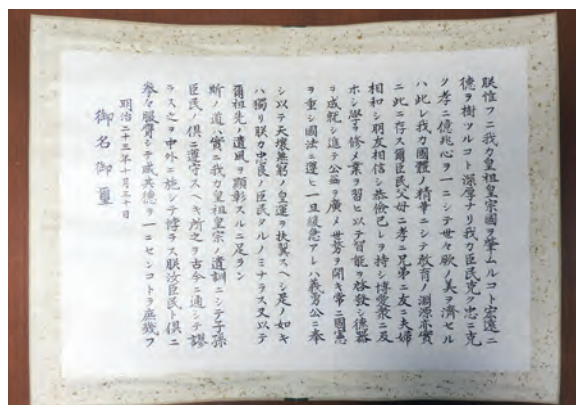 朕惟フニ我カ皇祖皇宗國ヲ肇ムルコト宏遠ニ
德ヲ樹ツルコト深厚ナリ我カ臣民克ク忠ニ克
ク孝ニ億兆心ヲ一ニシテ世々厥ノ美ヲ濟セル
ハ此レ我カ國體ノ精華ニシテ教育ノ淵源亦實
ニ此ニ存ス爾臣民父母ニ孝ニ兄弟ニ友ニ夫婦
相和シ朋友相信シ恭儉己レヲ持シ博愛衆ニ及
ホシ學ヲ修メ業ヲ習ヒ以テ智能ヲ啓發シ德器
ヲ成就シ進テ公益ヲ廣メ世務ヲ開キ常ニ國憲
ヲ重シ國法ニ遵ヒ一旦緩急アレハ義勇公ニ奉
シ以テ天壤無窮ノ皇運ヲ扶翼スヘシ是ノ如キ
ハ獨リ朕カ忠良ノ臣民タルノミナラス又以テ
爾祖先ノ遺風ヲ顯彰スルニ足ラン
斯ノ道ハ實ニ我カ皇祖皇宗ノ遺訓ニシテ子孫
臣民ノ倶ニ遵守スヘキ所之ヲ古今ニ通シテ謬
ラス之ヲ中外ニ施シテ悖ラス朕汝臣民ト倶ニ
拳々服膺シテ咸其德ヲ一ニセンコトヲ庶幾フ
明治二十三年十月三十日
御名御璽